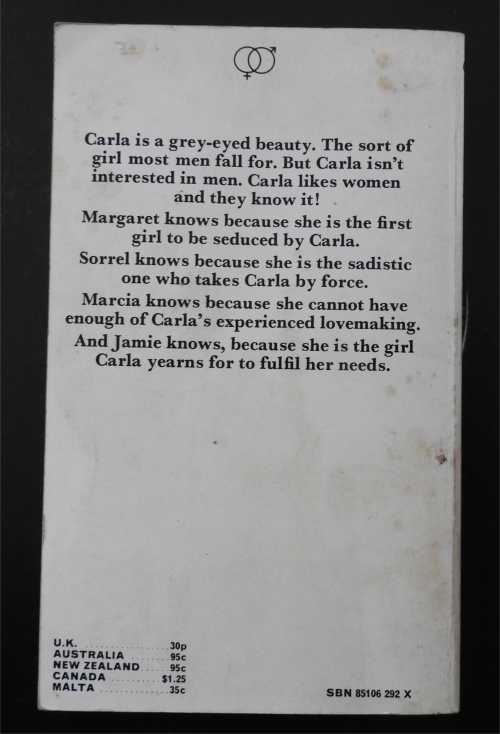 Carla is a grey-eyed beauty. The sort of
girl most men fall for. But Carla isn't
interested in men. Carla likes women
and they know it!
Margaret knows because she is the first
girl to be seduced by Carla.
Sorrel knows because she is the sadistic
one who takes Carla by force.
Marcia knows because she cannot have
enough of Carla's experienced lovemaking.
And Jamie knows, because she is the girl
Carla yearns for to fulfil her needs.
U.K. .................. 30p
AUSTRALIA ........ 95c
NEW ZEALAND .... 95c
CANADA .......... $1.25
MALTA .............. 35c
SBN 85106 292 X